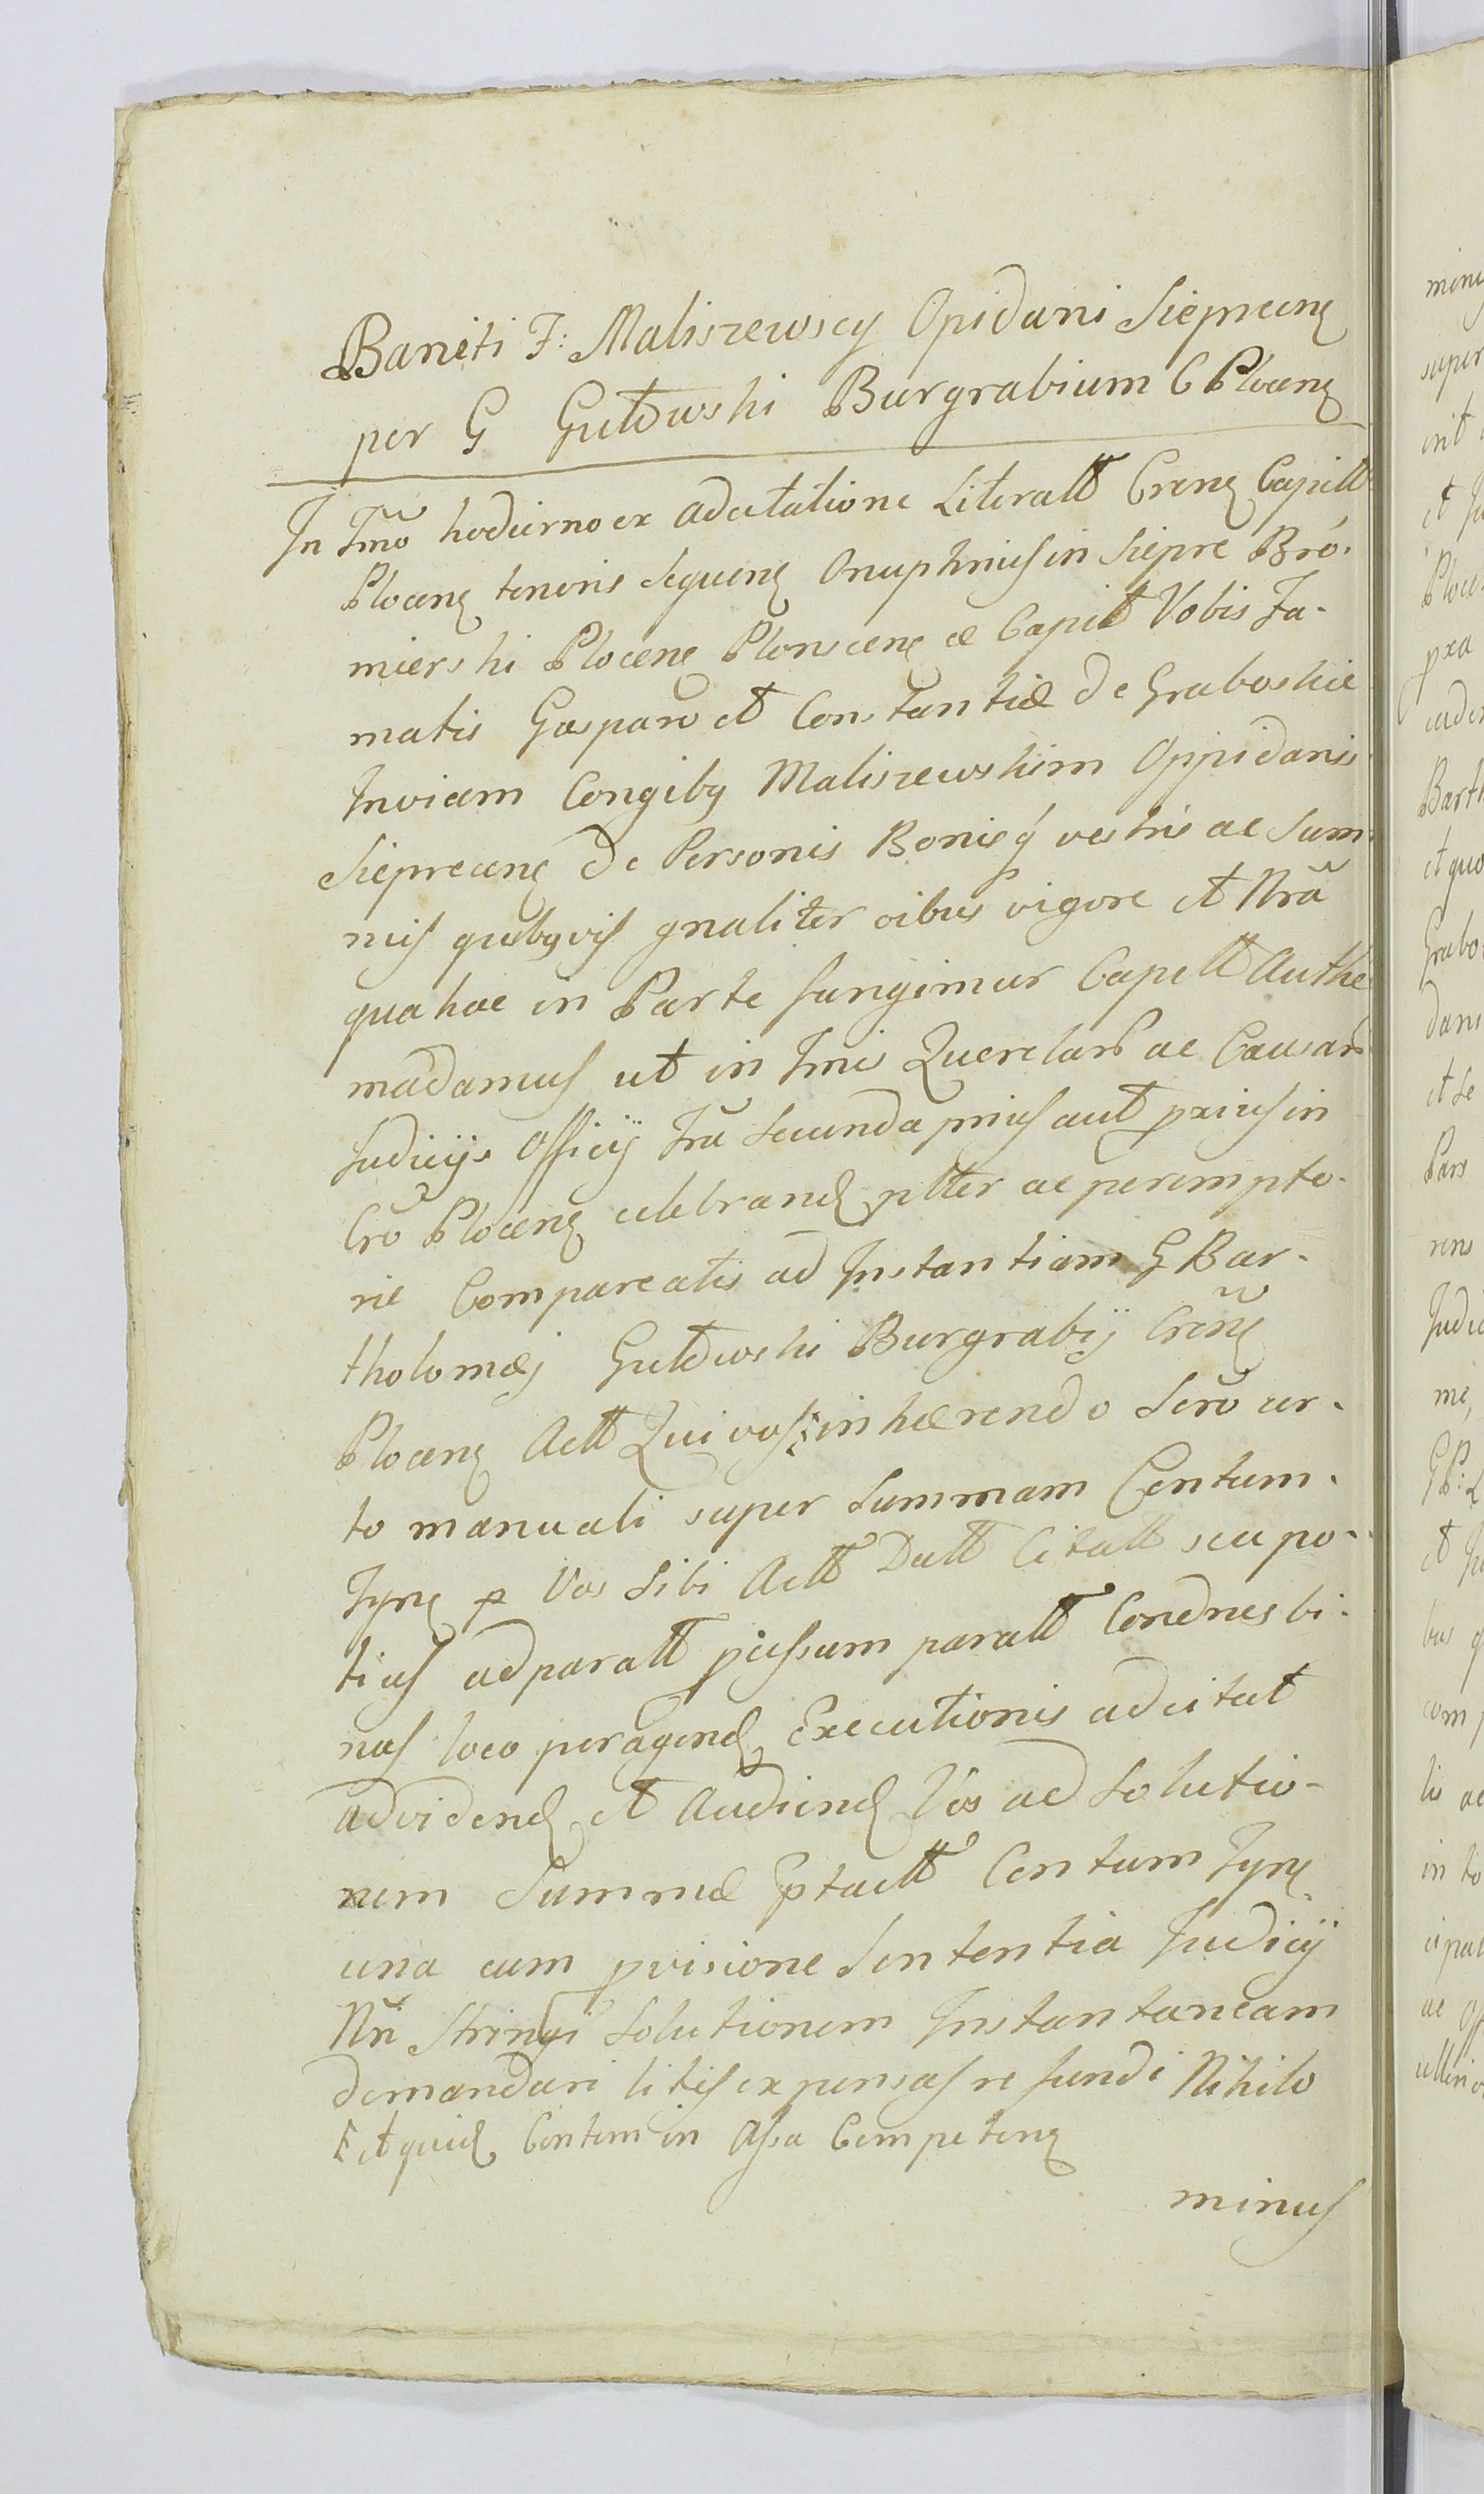 Baniti F: Maliszewscy Opidani Sieprcen
per G Gutowski Burgrabium C Plocen
In Tmo hodierno ex adcitatione Literall Cren Capitt
Plocen tenoris sequen Onuphrius in Siepre Bro-
mierski Plocen Plonscen œ Capit Vobis Fa-
matis Gasparo et Constantiæ de Graboskie
Invicem Congibg Maliszewskim Oppidanis
Sieprecen de Personis Bonisq vestris ac Sum-
mis quibgvis gnaliter oibus vigore et Nra
qua hac in Parte fungimur Capitt Authe
madamus ut in Tmis Querelar ac Causar
Judicijs Officij fra secunda prius aut pxius in
Cro Plocen celebrand ptter ac perempto-
rie Compareatis ad Instantiam G Bar-
tholomæj Gutowski Burgrabij Cren
Plocen Actt Qui vos inhærendo Scro cer-
to manuali super Summam Centum
Tyn p Vos Sibi Actt Datt Citatt seu po-
tius ad paratt pcussum paratt Condnes bi-
nas loco peragend Executionis adcitat
ad vidend et Audiend Vos ad Solutio-
nem Summæ Ptactt Centum Tyn
una cum pvisione Sententia Judicij
Nri Stringi Solutionem Instantaneam
demandari litis expensas refundi Nihilo
et quid Contem in Assa Competen
minus
mine
super
erit
et Ju
Ploce
pra
eader
Barth
et quo
Grabo
dani
et se
Pars
rens
Judic
me
bus
com
lis ac
in to